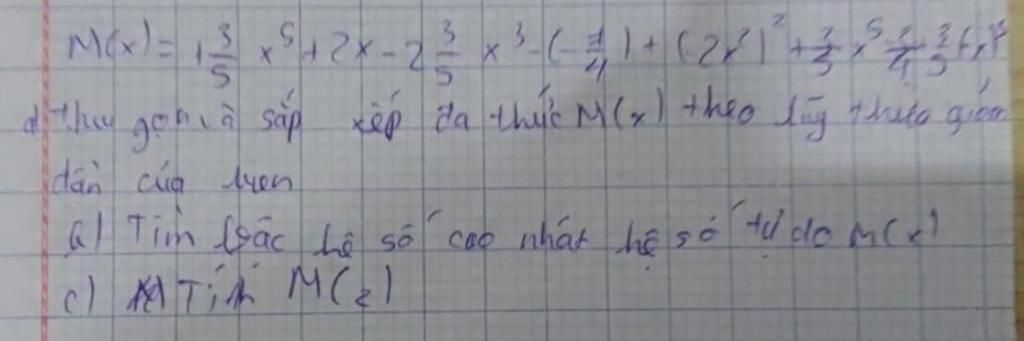 M(x) = 1 3/5 x⁵ + 2x - 2 3/5 x³ - (-1/4) + (-2x²)² + 3/5 x⁵
thu gọn và sắp xếp đa thức M(x) theo lũy thừa giảm
dần của biến
a) Tìm bậc hệ số cao nhất hệ số tự do M(x)
c) Tính M(2)